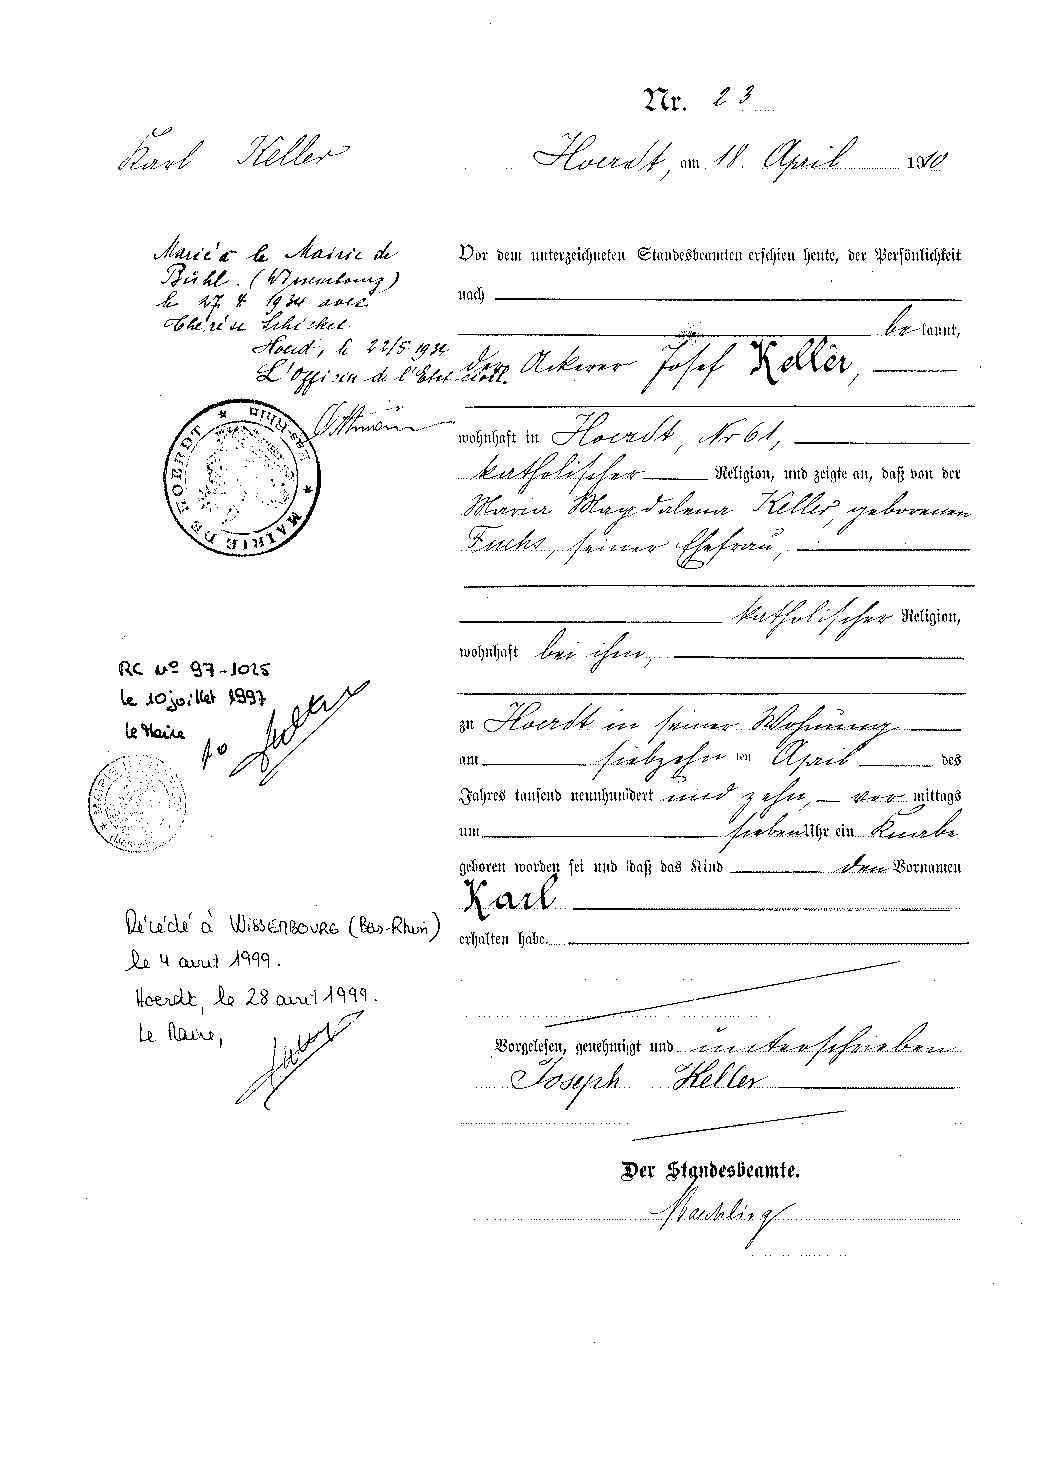 Nr. 23
Karl Keller
Hoerdt, am 18. April 1910
Marié à la Mairie de
Bühl. (Wissembourg)
le 27 4 1934 avec
Thérèse Schickel
Hoerdt, le 22/5 1934
L'Officier de l'Etat civil.
MAIRIE DE HOERDT ★ BAS-RHIN ★
RC N° 97-1025
le 10 juillet 1997
le Maire
Décédé à WISSEMBOURG (Bas-Rhin)
le 4 avril 1999.
Hoerdt, le 28 avril 1999.
Le Maire,
Vor dem unterzeichneten Standesbeamten erschien heute, der Persönlichkeit
nach
be kannt,
der Ackerer Josef Keller,
wohnhaft in Hoerdt, Nr 61,
katholischer Religion, und zeigte an, daß von der
Maria Magdalena Keller, geborenen
Fuchs, seiner Ehefrau,
katholischer Religion,
wohnhaft bei ihm,
zu Hoerdt in seiner Wohnung
am siebzehn ten April des
Jahres tausend neunhundert und zehn, vor mittags
um sieben Uhr ein Knabe
geboren worden sei und daß das Kind den Vornamen
Karl
erhalten habe.
Vorgelesen, genehmigt und unterschrieben
Joseph Keller
Der Standesbeamte.